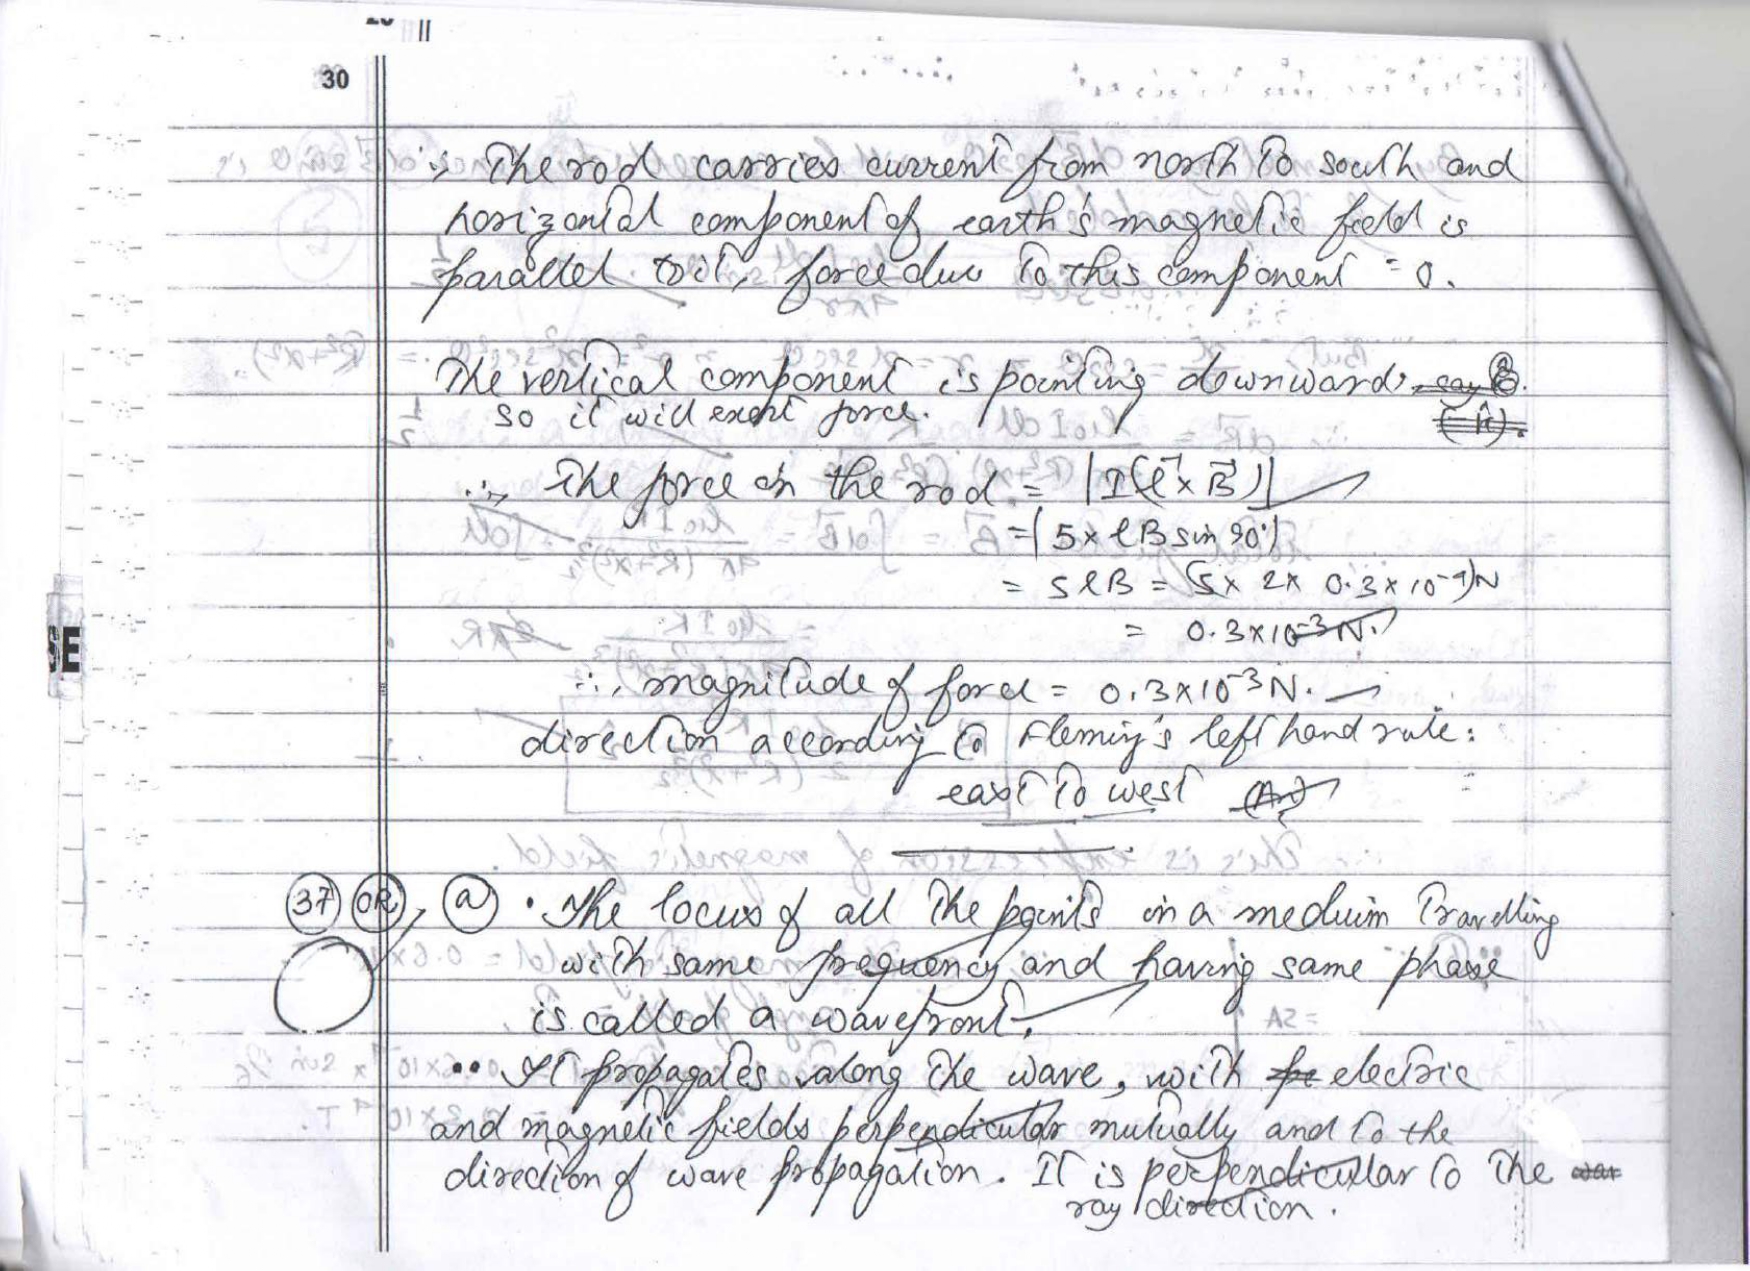 30
∴, The rod carries current from north to south and
horizontal component of earth's magnetic field is
parallel to it, force due to this component = 0.
The vertical component is pointing downwards
so it will exert force.
∴, The force on the rod = |I(l⃗ × B⃗)|
= |5 × lB sin 90°|
= 5lB = (5 × 2 × 0.3 × 10⁻⁴)N
= 0.3×10⁻³ N.
∴, magnitude of force = 0.3×10⁻³ N.
direction according to Fleming's left hand rule:
east to west (Ans)
37 OR, a • The locus of all the points in a meduim travelling
with same frequency and having same phase
is called a wavefront.
•• It propagates along the wave, with electric
and magnetic fields perpendicular mutually and to the
direction of wave propagation. It is perpendicular to the
ray direction.